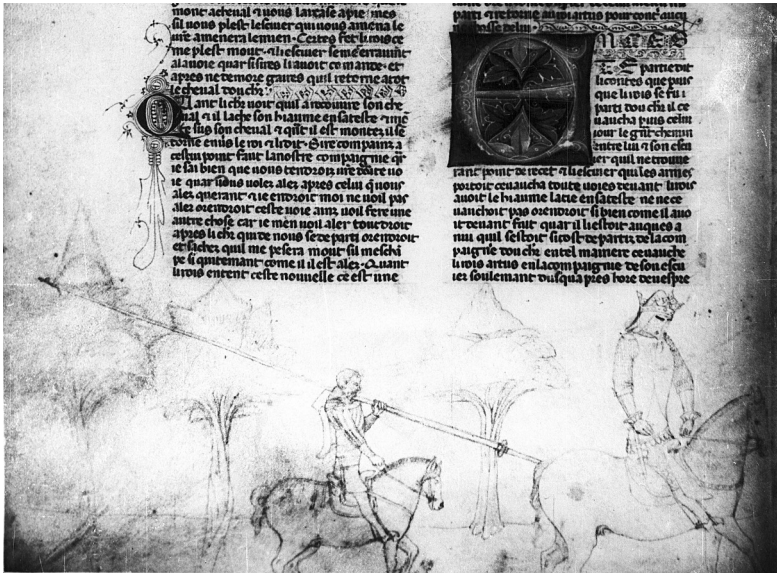 mont acheual ⁊ vous laistase apie mes
sil vous plest lescuier qui vous amena le
ure amenera lennien. Certes fet li rois ce
me plest mout. ⁊ li escuier semet errāument
alauoie quar si sires li auoit cōmande. et
apres ne demore gaires quil retorne atot
le cheual dou chr̄.
Quant li chr̄ uoit quil a recouure son che
ual ⁊ il lache son hiaume en sa teste ⁊ mō
te sus son cheual ⁊ quāt il est montez il se
torne enuers le roi ⁊ li dist. Sire compainz a
cestui point faut la nostre compaignie qr̄
ie sai bien que vous tendroiz vre droite uo
ie quar si vos volez alez apres celui q̄ vous
alez querant ⁊ ie endroit moi ne voil pas
alez orendroit ceste voie ainz voil fere une
autre chose car ie men voil aler tout droit
apres li chr̄ qui de nous se departi orendroit
et sachez quil me pesera mout sil meschā
pe si quitement come il il est alez. Quant
li rois entent ceste nouuelle ce est une
parti ⁊ retorne
NGES
partie dit
li contes que puis
que li rois se fu
parti dou chr̄ il ce
uaucha puis celui
iour le grāt chemin
entre lui ⁊ son escu
ier quil ne trouue
rant point de recet ⁊ li escuier qui les armes
portoit ceuaucha toute voies deuant li rois
auoit le hiaume lacie en sa teste ne ne ce
uauchoit pas orendroit si bien come il auo
it deuant fait quar il li estoit auques a
nui quil sestoit si tost departiz de la com
paignie dou chr̄ en tel maniere ceuauche
li rois artus en la compaignie de son escu
ier soulemant dusqua pres hore de uespre